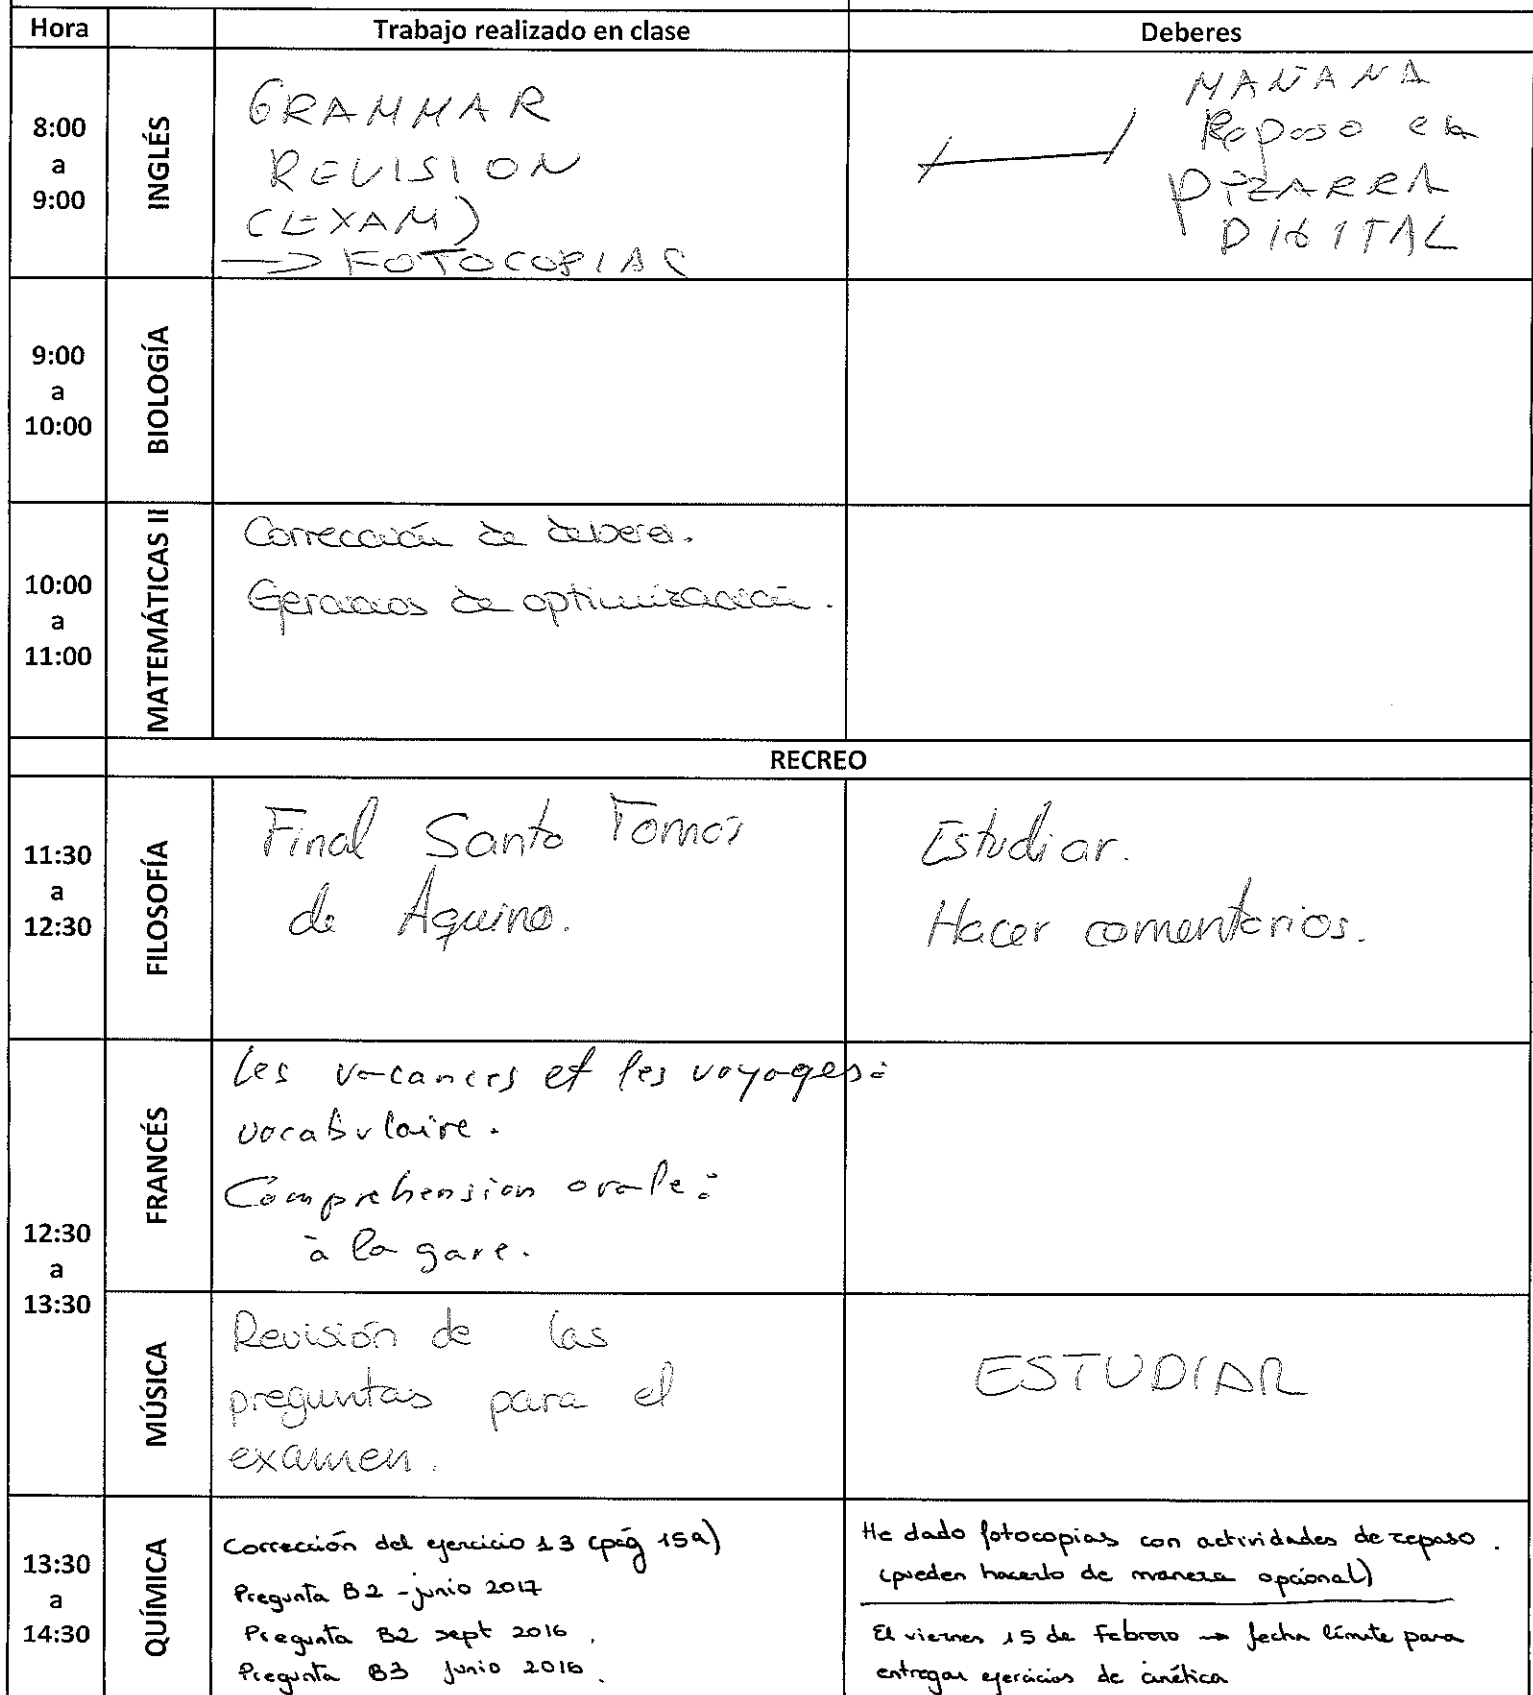 Hora Trabajo realizado en clase Deberes
8:00
a
9:00
INGLÉS
GRAMMAR
REVISION
(EXAM)
→ FOTOCOPIAS
MAÑANA
Repaso en
PIZARRA
DIGITAL
9:00
a
10:00
BIOLOGÍA
10:00
a
11:00
MATEMÁTICAS II
Corrección de deberes.
Ejercicios de optimización.
RECREO
11:30
a
12:30
FILOSOFÍA
Final Santo Tomás
de Aquino.
Estudiar.
Hacer comentarios.
12:30
a
13:30
FRANCÉS
Les vacances et les voyages:
vocabulaire.
Comprehension orale:
à la gare.
MÚSICA
Revisión de las
preguntas para el
examen.
ESTUDIAR
13:30
a
14:30
QUÍMICA
Corrección del ejercicio 13 (pág 159)
Pregunta B2 - junio 2017
Pregunta B2 sept 2016.
Pregunta B3 junio 2016.
He dado fotocopias con actividades de repaso.
(pueden hacerlo de manera opcional)
El viernes 15 de Febrero → fecha límite para
entregar ejercicios de cinética